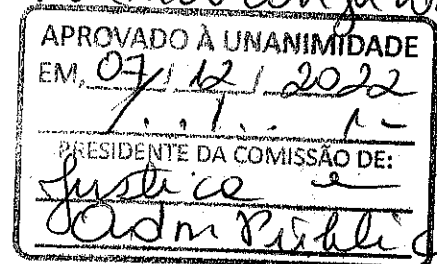 APROVADO À UNANIMIDADE
EM, 07 / 12 / 2022
PRESIDENTE DA COMISSÃO DE:
Justiça e
Adm Públic